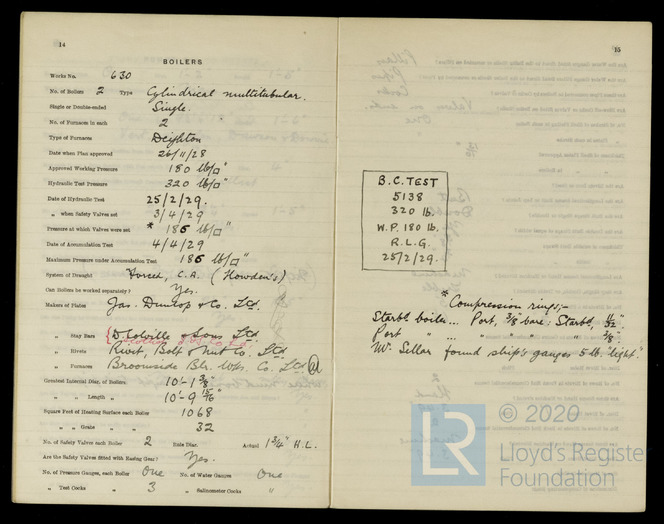 14
BOILERS
Works No. 630
No. of Boilers 2 Type Cylindrical multitubular.
Single or Double-ended Single.
No. of Furnaces in each 2
Type of Furnaces Deighton
Date when Plan approved 26/11/28
Approved Working Pressure 180 lb/□"
Hydraulic Test Pressure 320 lb/□"
Date of Hydraulic Test 25/2/29.
„ when Safety Valves set 3/4/29
Pressure at which Valves were set * 186 lb/□"
Date of Accumulation Test 4/4/29
Maximum Pressure under Accumulation Test 186 lb/□"
System of Draught Forced, C.A. (Howden's)
Can Boilers be worked separately? Yes.
Makers of Plates Jas. Dunlop & Co. Ltd.
„ Stay Bars D. Colville & Sons Ltd
„ Rivets Rivet, Bolt & Nut Co. Ltd
„ Furnaces Broomside Blr. Wks. Co. Ltd
Greatest Internal Diam. of Boilers 10'-1 3/8"
„ „ Length „ 10'-9 15/16"
Square Feet of Heating Surface each Boiler 1068
„ „ Grate „ „ 32
No. of Safety Valves each Boiler 2 Rule Diar. Actual 1 3/4" H.L.
Are the Safety Valves fitted with Easing Gear? Yes.
No. of Pressure Gauges, each Boiler One No. of Water Gauges One
„ Test Cocks „ 3 „ Salinometer Cocks „
15
B.C. TEST
5138
320 lb.
W.P. 180 lb.
R.L.G.
25/2/29.
* Compression rings;-
Starbd boiler... Port, 3/8" bare; Starbd, 11/32"
Port " ... " " " " 3/8
Mr. Sellar found ship's gauges 5 lb. "light."
© 2020
LR
Lloyd's Register
Foundation